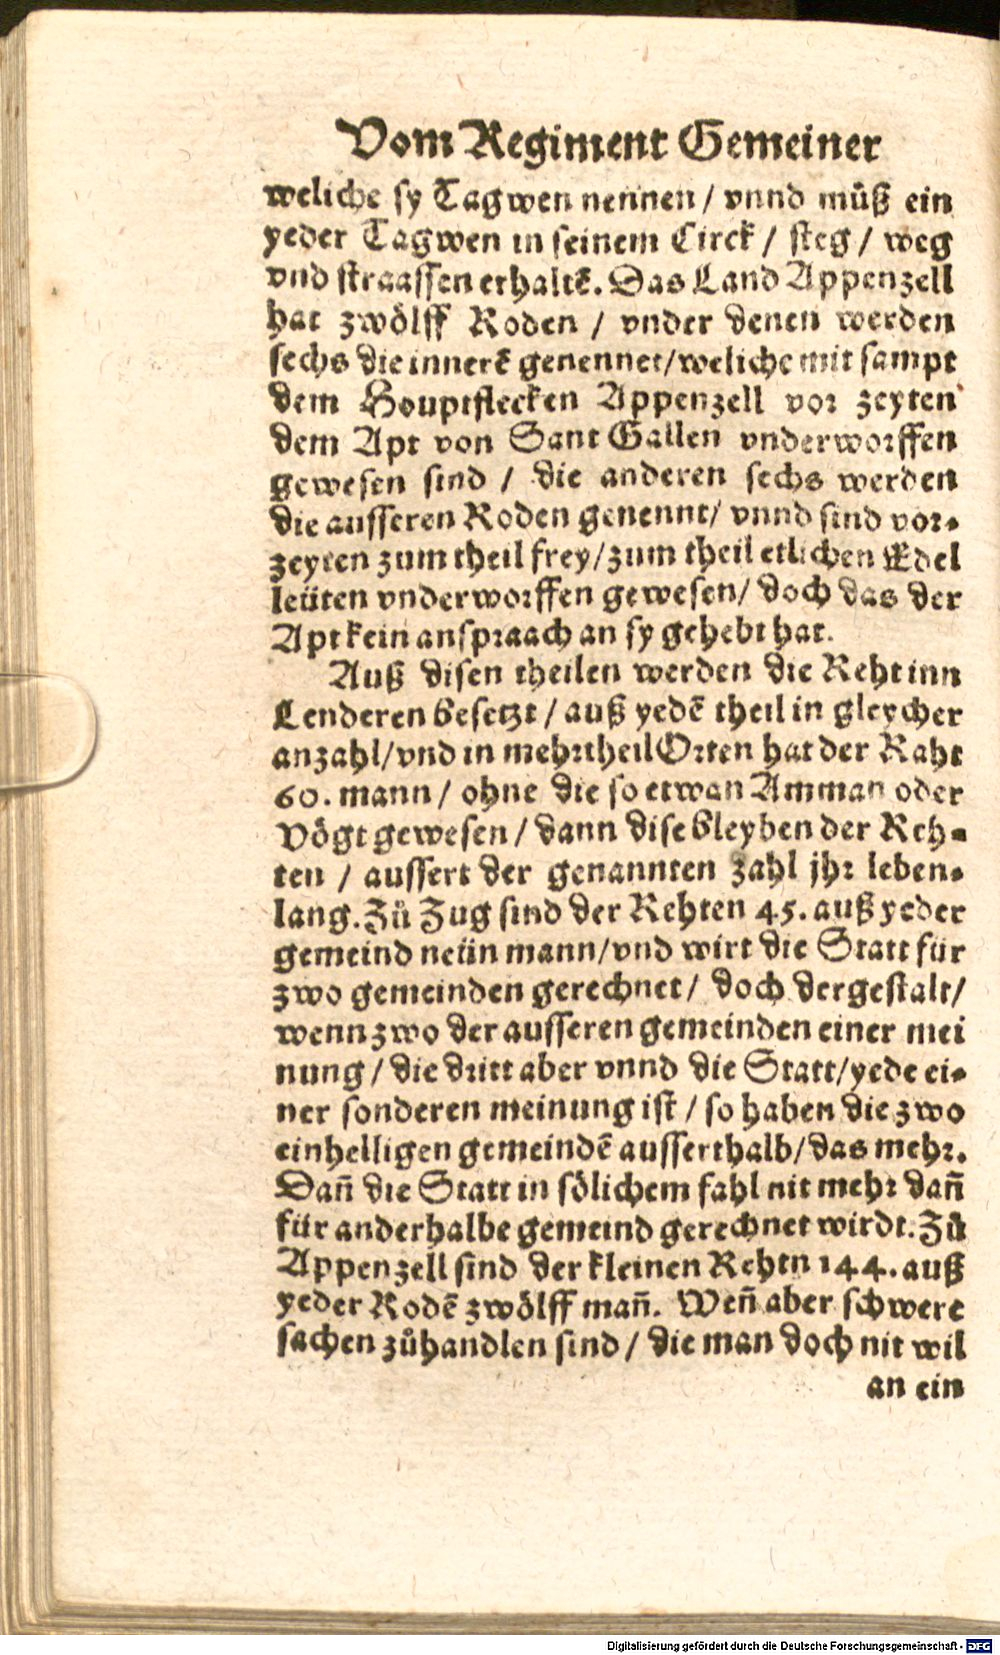 Vom Regiment Gemeiner
weliche sy Tagwen nennen / vnnd můß ein
yeder Tagwen in seinem Circk / steg / weg
vnd straassen erhaltē. Das Land Appenzell
hat zwölff Roden / vnder denen werden
sechs die innerē genennet/weliche mit sampt
dem Houptflecken Appenzell vor zeyten
dem Apt von Sant Gallen vnderworffen
gewesen sind / die anderen sechs werden
die ausseren Roden genennt/ vnnd sind vor-
zeyten zum theil frey/zum theil etlichen Edel
leüten vnderworffen gewesen/ doch das der
Apt kein anspraach an sy gehebt hat.
Auß disen theilen werden die Reht inn
Lenderen besetzt / auß yedē theil in gleycher
anzahl/vnd in mehrtheil Orten hat der Raht
60. mann / ohne die so etwan Amman oder
Vögt gewesen / dann dise bleyben der Reh-
ten / aussert der genannten zahl jhr leben-
lang. Zů Zug sind der Rehten 45. auß yeder
gemeind neün mann/vnd wirt die Statt für
zwo gemeinden gerechnet / doch dergestalt/
wenn zwo der ausseren gemeinden einer mei
nung / die dritt aber vnnd die Statt/yede ei-
ner sonderen meinung ist / so haben die zwo
einhelligen gemeindē ausserthalb/das mehr.
Dañ die Statt in sölichem fahl nit mehr dañ
für anderhalbe gemeind gerechnet wirdt. Zů
Appenzell sind der kleinen Rehtn 144. auß
yeder Rodē zwölff mañ. Weñ aber schwere
sachen zůhandlen sind / die man doch nit wil
an ein
Digitalisierung gefördert durch die Deutsche Forschungsgemeinschaft - DFG